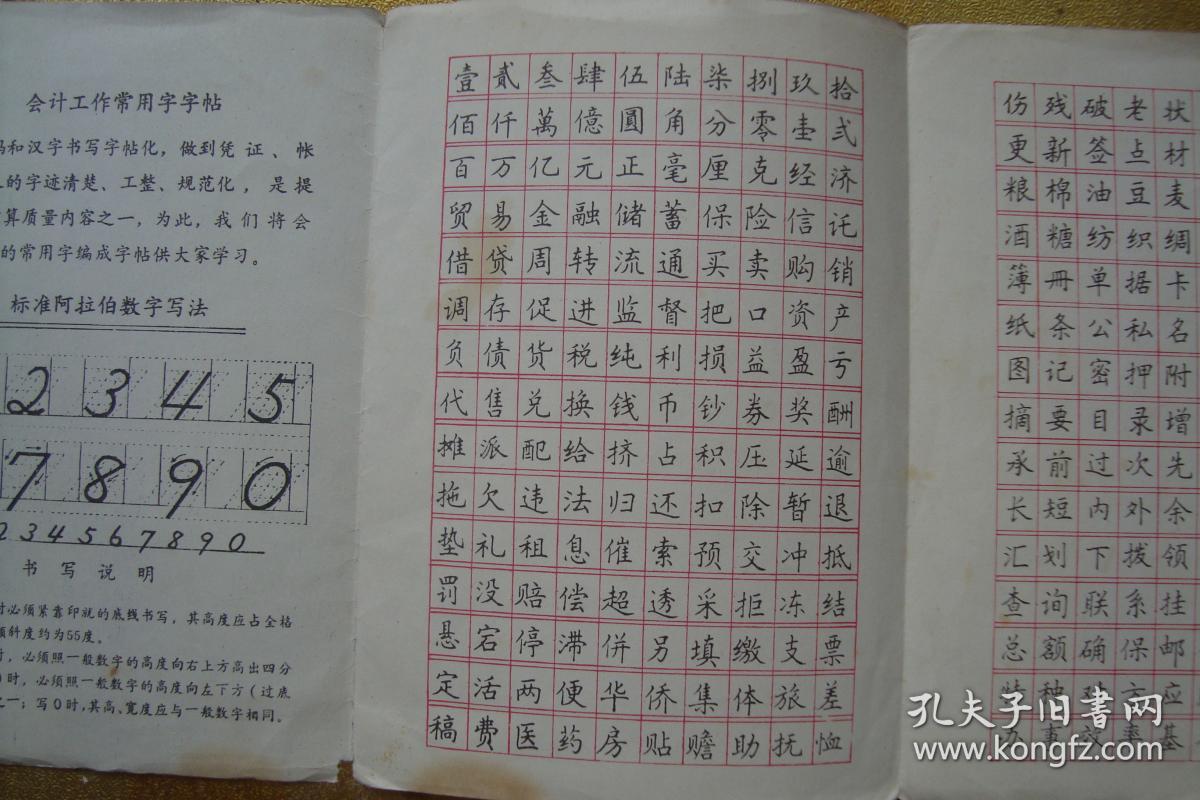 会计工作常用字字帖
和汉字书写字帖化，做到凭证、帐
的字迹清楚、工整、规范化，是提
算质量内容之一，为此，我们将会
的常用字编成字帖供大家学习。
标准阿拉伯数字写法
2 3 4 5
7 8 9 0
234567890
书写说明
时必须紧靠印就的底线书写，其高度应占全格
倾斜度约为55度。
时，必须照一般数字的高度向右上方高出四分
时，必须照一般数字的高度向左下方（过底
之一；写0时，其高、宽度应与一般数字相同。
壹贰叁肆伍陆柒捌玖拾
佰仟萬億圓角分零圭弍
百万亿元正毫厘克经济
贸易金融储蓄保险信托
借贷周转流通买卖购销
调存促进监督把口资产
负债货税纯利损益盈亏
代售兑换钱币钞券奖酬
摊派配给挤占积压延逾
拖欠违法归还扣除暂退
垫礼租息催索预交冲抵
罚没赔偿超透采拒冻结
悬宕停滞併另填缴支票
定活两便华侨集体旅差
稿费医药房贴赡助抚恤
伤残破老状
更新签点材
粮棉油豆麦
酒糖纺织绸
簿册单据卡
纸条公私名
图记密押附
摘要目录增
承前过次先
长短内外余
汇划下拨领
查询联系挂
总额确保邮
种对方应
办事效率基
孔夫子旧书网
www.kongfz.com